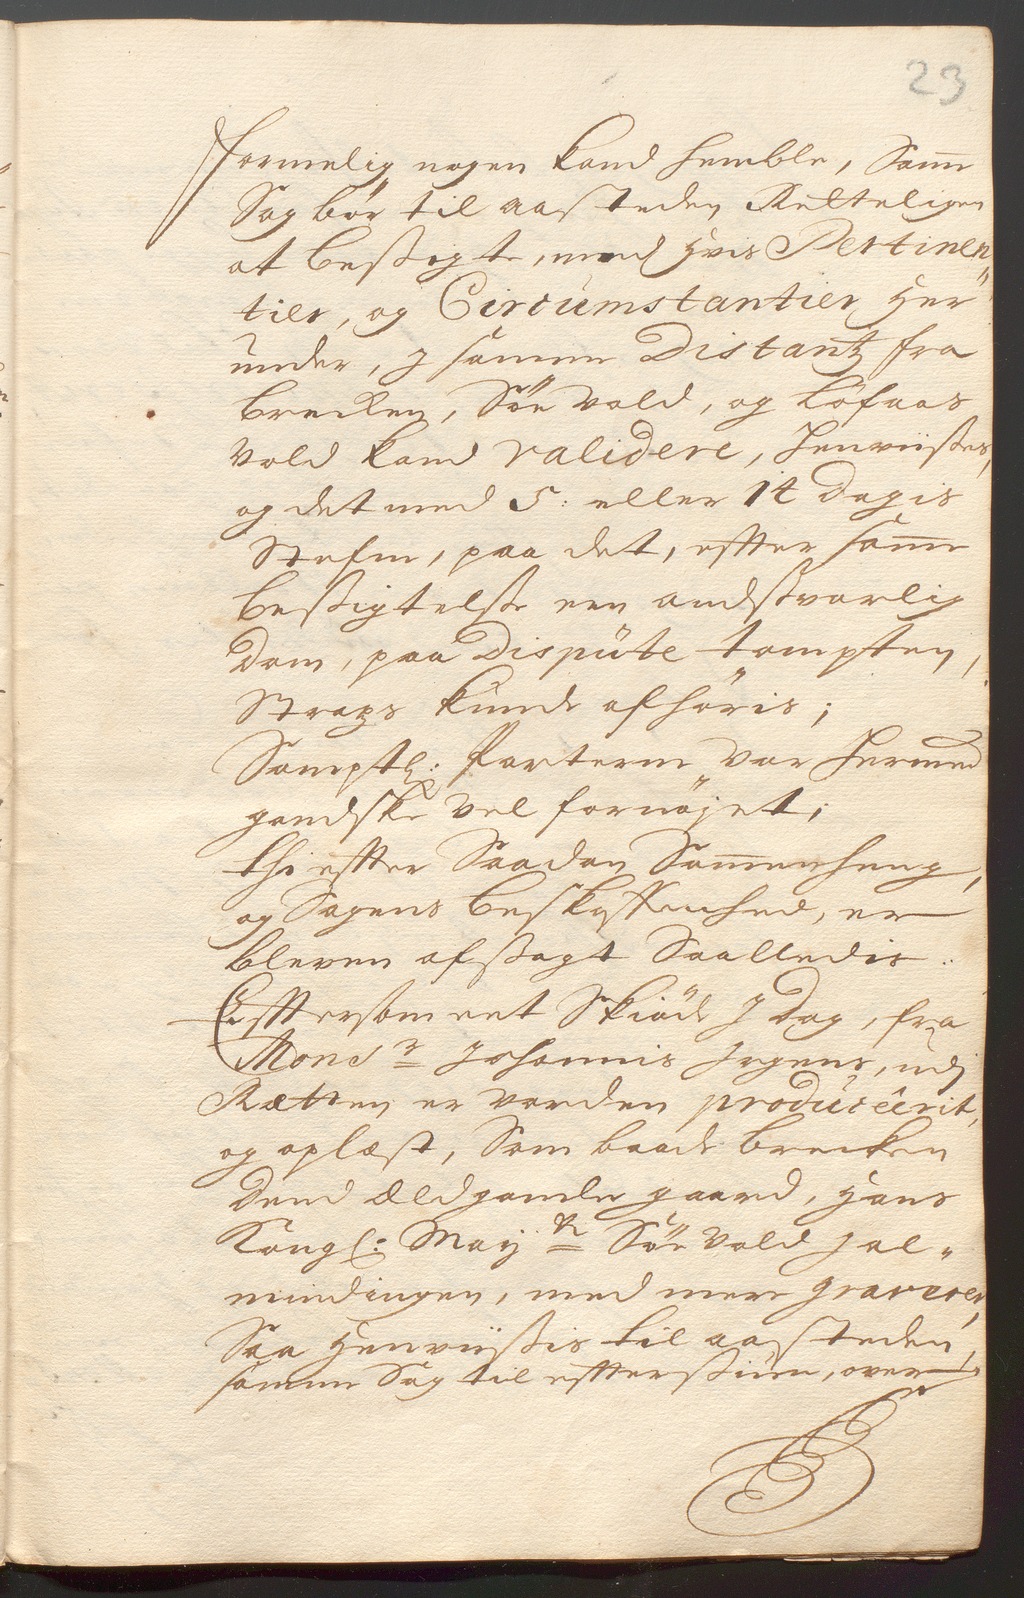 23
formelig nogen kand hemble, Samme
Sag bör til aasteden Retteligen
at besigte, med hvis Pertinen„
tier, og Circumstantier her
under, J samme Distantz fra
brecken, Söe Vold, og Löfaas
Vold kand validere, henviises,
og det med 5: eller 14 Dagis
Stefn, paa det, effter samme
besigtelse een andsvarlig
Dom, paa Dispute tompten,
Straxs kunde afhöris;
Samptl: Parterne var hermed
gandske vel fornöjet;
thi effter Saadan Sammenheng,
og Sagens beskaffenhed, er
bleven afsagt Saalledis.
Efftersom eet Skiöde J Dag, fra
Monsr Johannis Jrgens, udj
Rætten er vorden producêrit,
og oplæst, Som baade brecken
dend ældgamle gaard, Hans
Kongl: Mayts Söe Vold J al„
mindingen, med mere graverer,
Saa henviisis til aasteden,
samme Sag til effterSiun, over